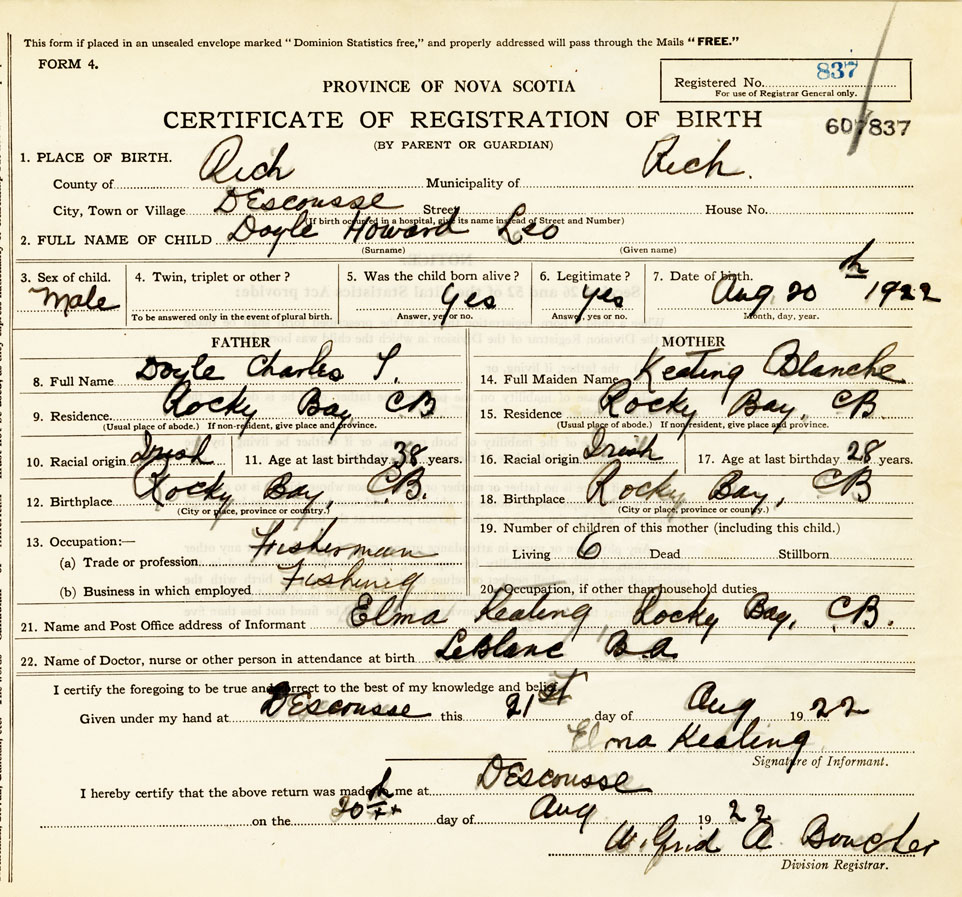 This form if placed in an unsealed envelope marked "Dominion Statistics free," and properly addressed will pass through the Mails "FREE."
FORM 4.
Registered No. 837
For use of Registrar General only.
PROVINCE OF NOVA SCOTIA
CERTIFICATE OF REGISTRATION OF BIRTH
607837
(BY PARENT OR GUARDIAN)
1. PLACE OF BIRTH.
County of Rich Municipality of Rich.
City, Town or Village DEscousse Street House No.
(If birth occurred in a hospital, give its name instead of Street and Number)
2. FULL NAME OF CHILD Doyle Howard Leo
(Surname) (Given name)
3. Sex of child. Male
4. Twin, triplet or other?
To be answered only in the event of plural birth.
5. Was the child born alive? Yes
Answer, yes or no.
6. Legitimate? Yes
Answer, yes or no.
7. Date of birth. Aug 20th 1922
Month, day, year.
FATHER
8. Full Name Doyle Charles T.
9. Residence. Rocky Bay, CB
(Usual place of abode.) If non-resident, give place and province.
10. Racial origin Irish 11. Age at last birthday 38 years.
12. Birthplace Rocky Bay, C.B.
(City or place, province or country.)
13. Occupation:—
(a) Trade or profession Fisherman
(b) Business in which employed Fishing
MOTHER
14. Full Maiden Name Keating Blanche
15. Residence Rocky Bay, CB
(Usual place of abode.) If non-resident, give place and province.
16. Racial origin Irish 17. Age at last birthday 28 years.
18. Birthplace Rocky Bay, CB
(City or place, province or country.)
19. Number of children of this mother (including this child.)
Living 6 Dead Stillborn
20. Occupation, if other than household duties
21. Name and Post Office address of Informant Elma Keating, Rocky Bay, CB.
22. Name of Doctor, nurse or other person in attendance at birth LeBlanc B A
I certify the foregoing to be true and correct to the best of my knowledge and belief.
Given under my hand at DEscousse this 21st day of Aug 1922
Elma Keating
Signature of Informant.
I hereby certify that the above return was made to me at DEscousse
on the day of Aug 1922
Wilfrid A Boucher
Division Registrar.